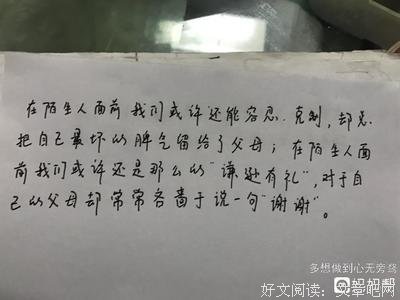 在陌生人面前我们或许还能容忍、克制，却总
把自己最坏的脾气留给了父母；在陌生人面
前我们或许还是那么的“谦逊有礼”，对于自
己的父母却常常吝啬于说一句“谢谢”。
多想做到心无旁鸶
妈妈帮
好文阅读：文章吧网